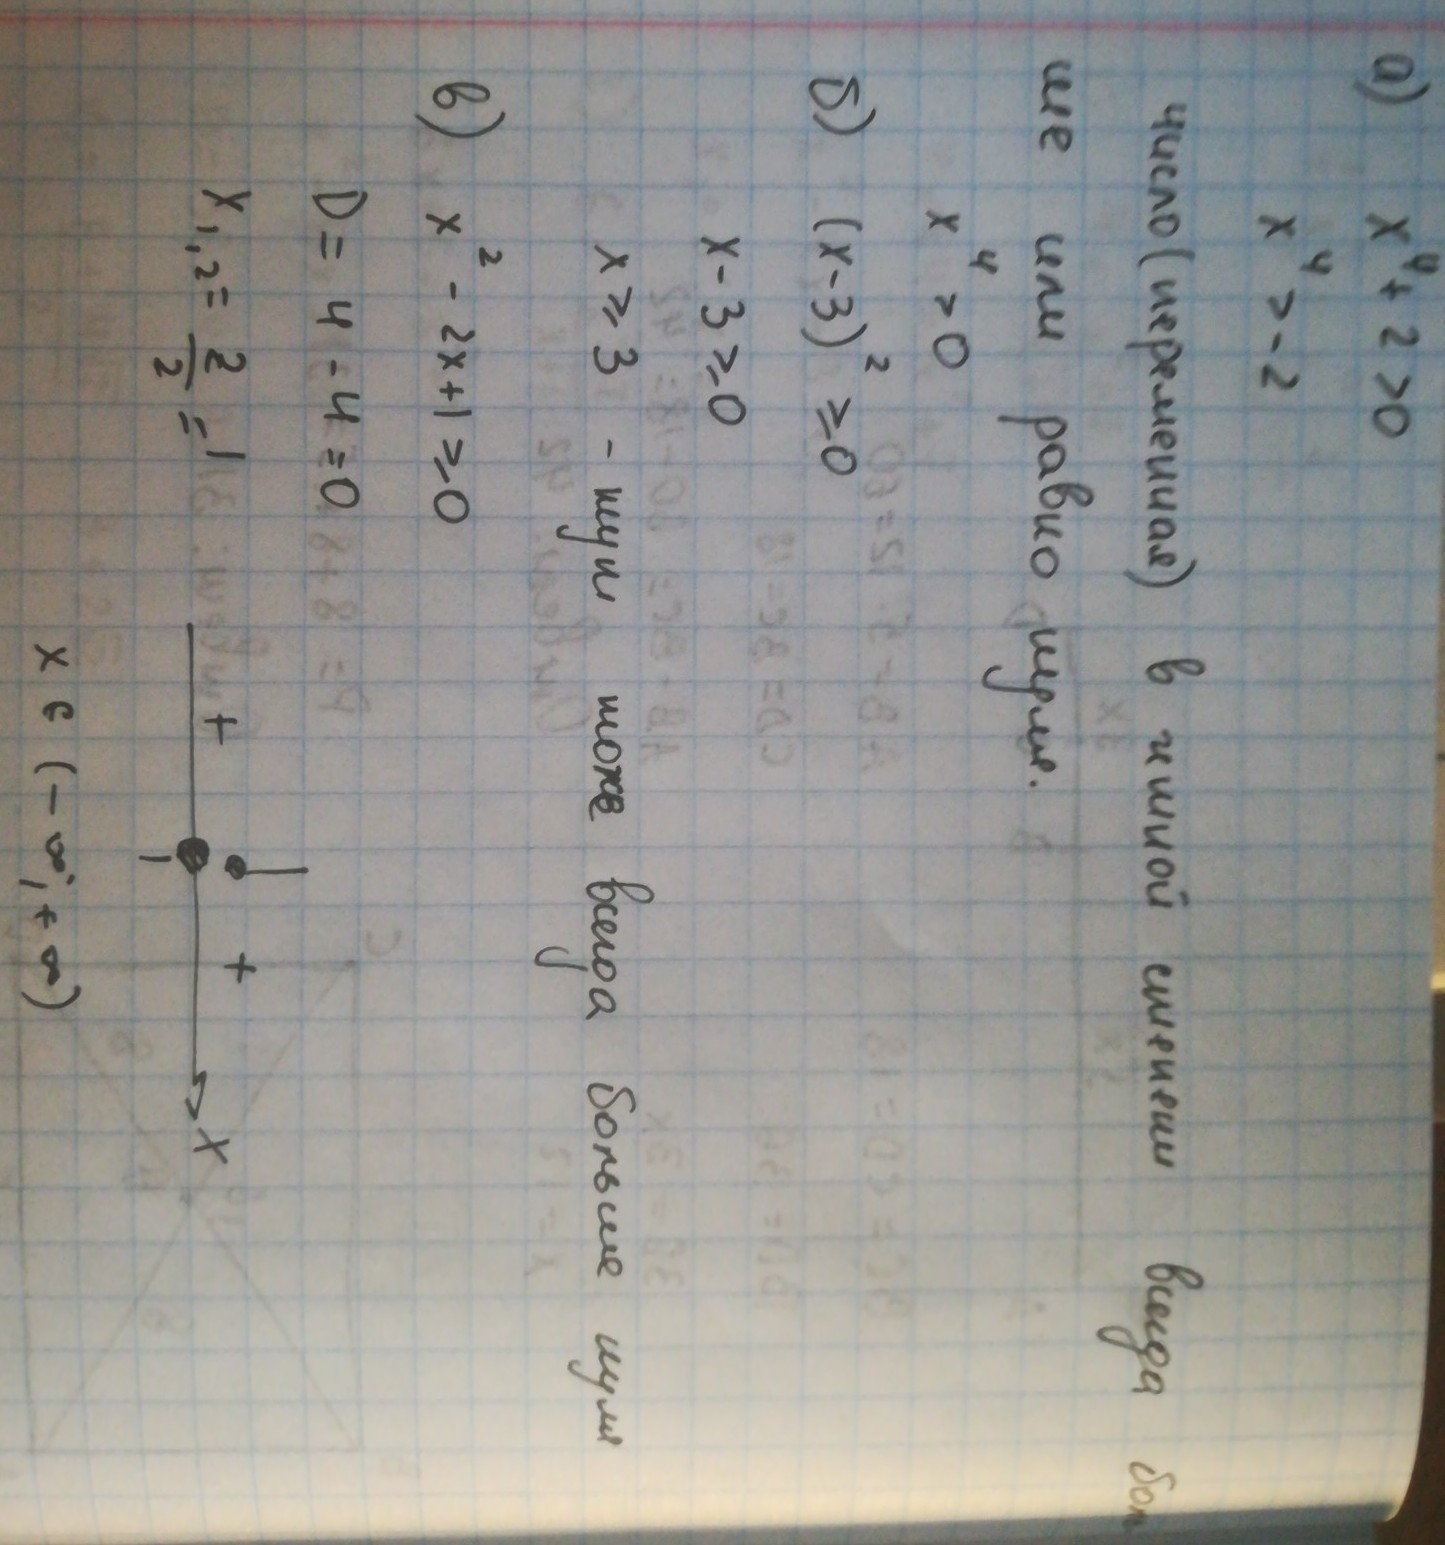 а) x⁴ + 2 > 0
x⁴ > -2
число (переменная) в чётной степени всегда боль
ше или равно нулю.
x⁴ > 0
б) (x-3)² ≥ 0
x - 3 ≥ 0
x ≥ 3 - нули тоже всегда больше нуля
в) x² - 2x + 1 ≥ 0
D = 4 - 4 = 0
x₁,₂ = 2/2 = 1
+ 1 + x
x ∈ (-∞; +∞)